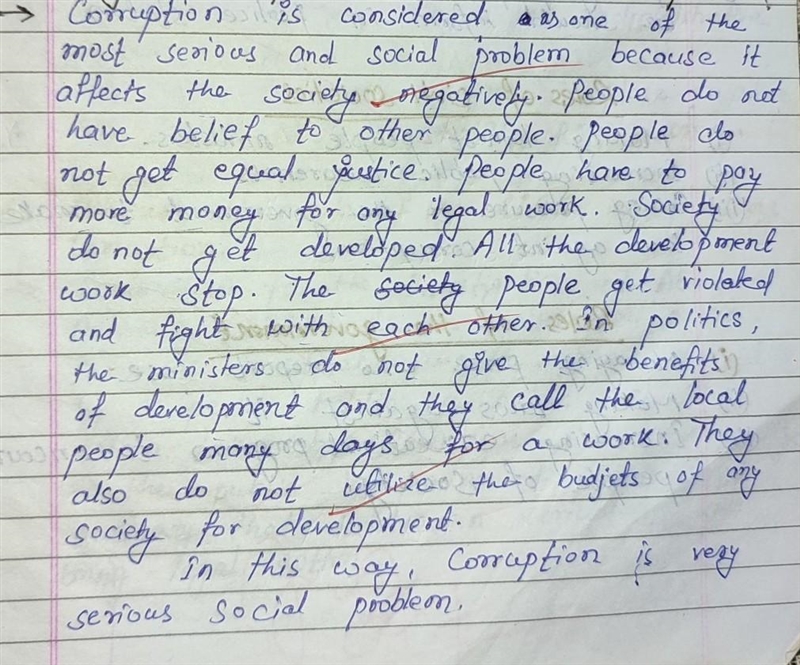 → Corruption is considered as one of the
most serious and social problem because it
affects the society negatively. People do not
have belief to other people. People do
not get equal justice. People have to pay
more money for any legal work. Society
do not get developed. All the development
work stop. The society people get violated
and fight with each other. In politics,
the ministers do not give the benefits
of development and they call the local
people many days for a work. They
also do not utilize the budjets of any
society for development.
In this way, Corruption is very
serious social problem.